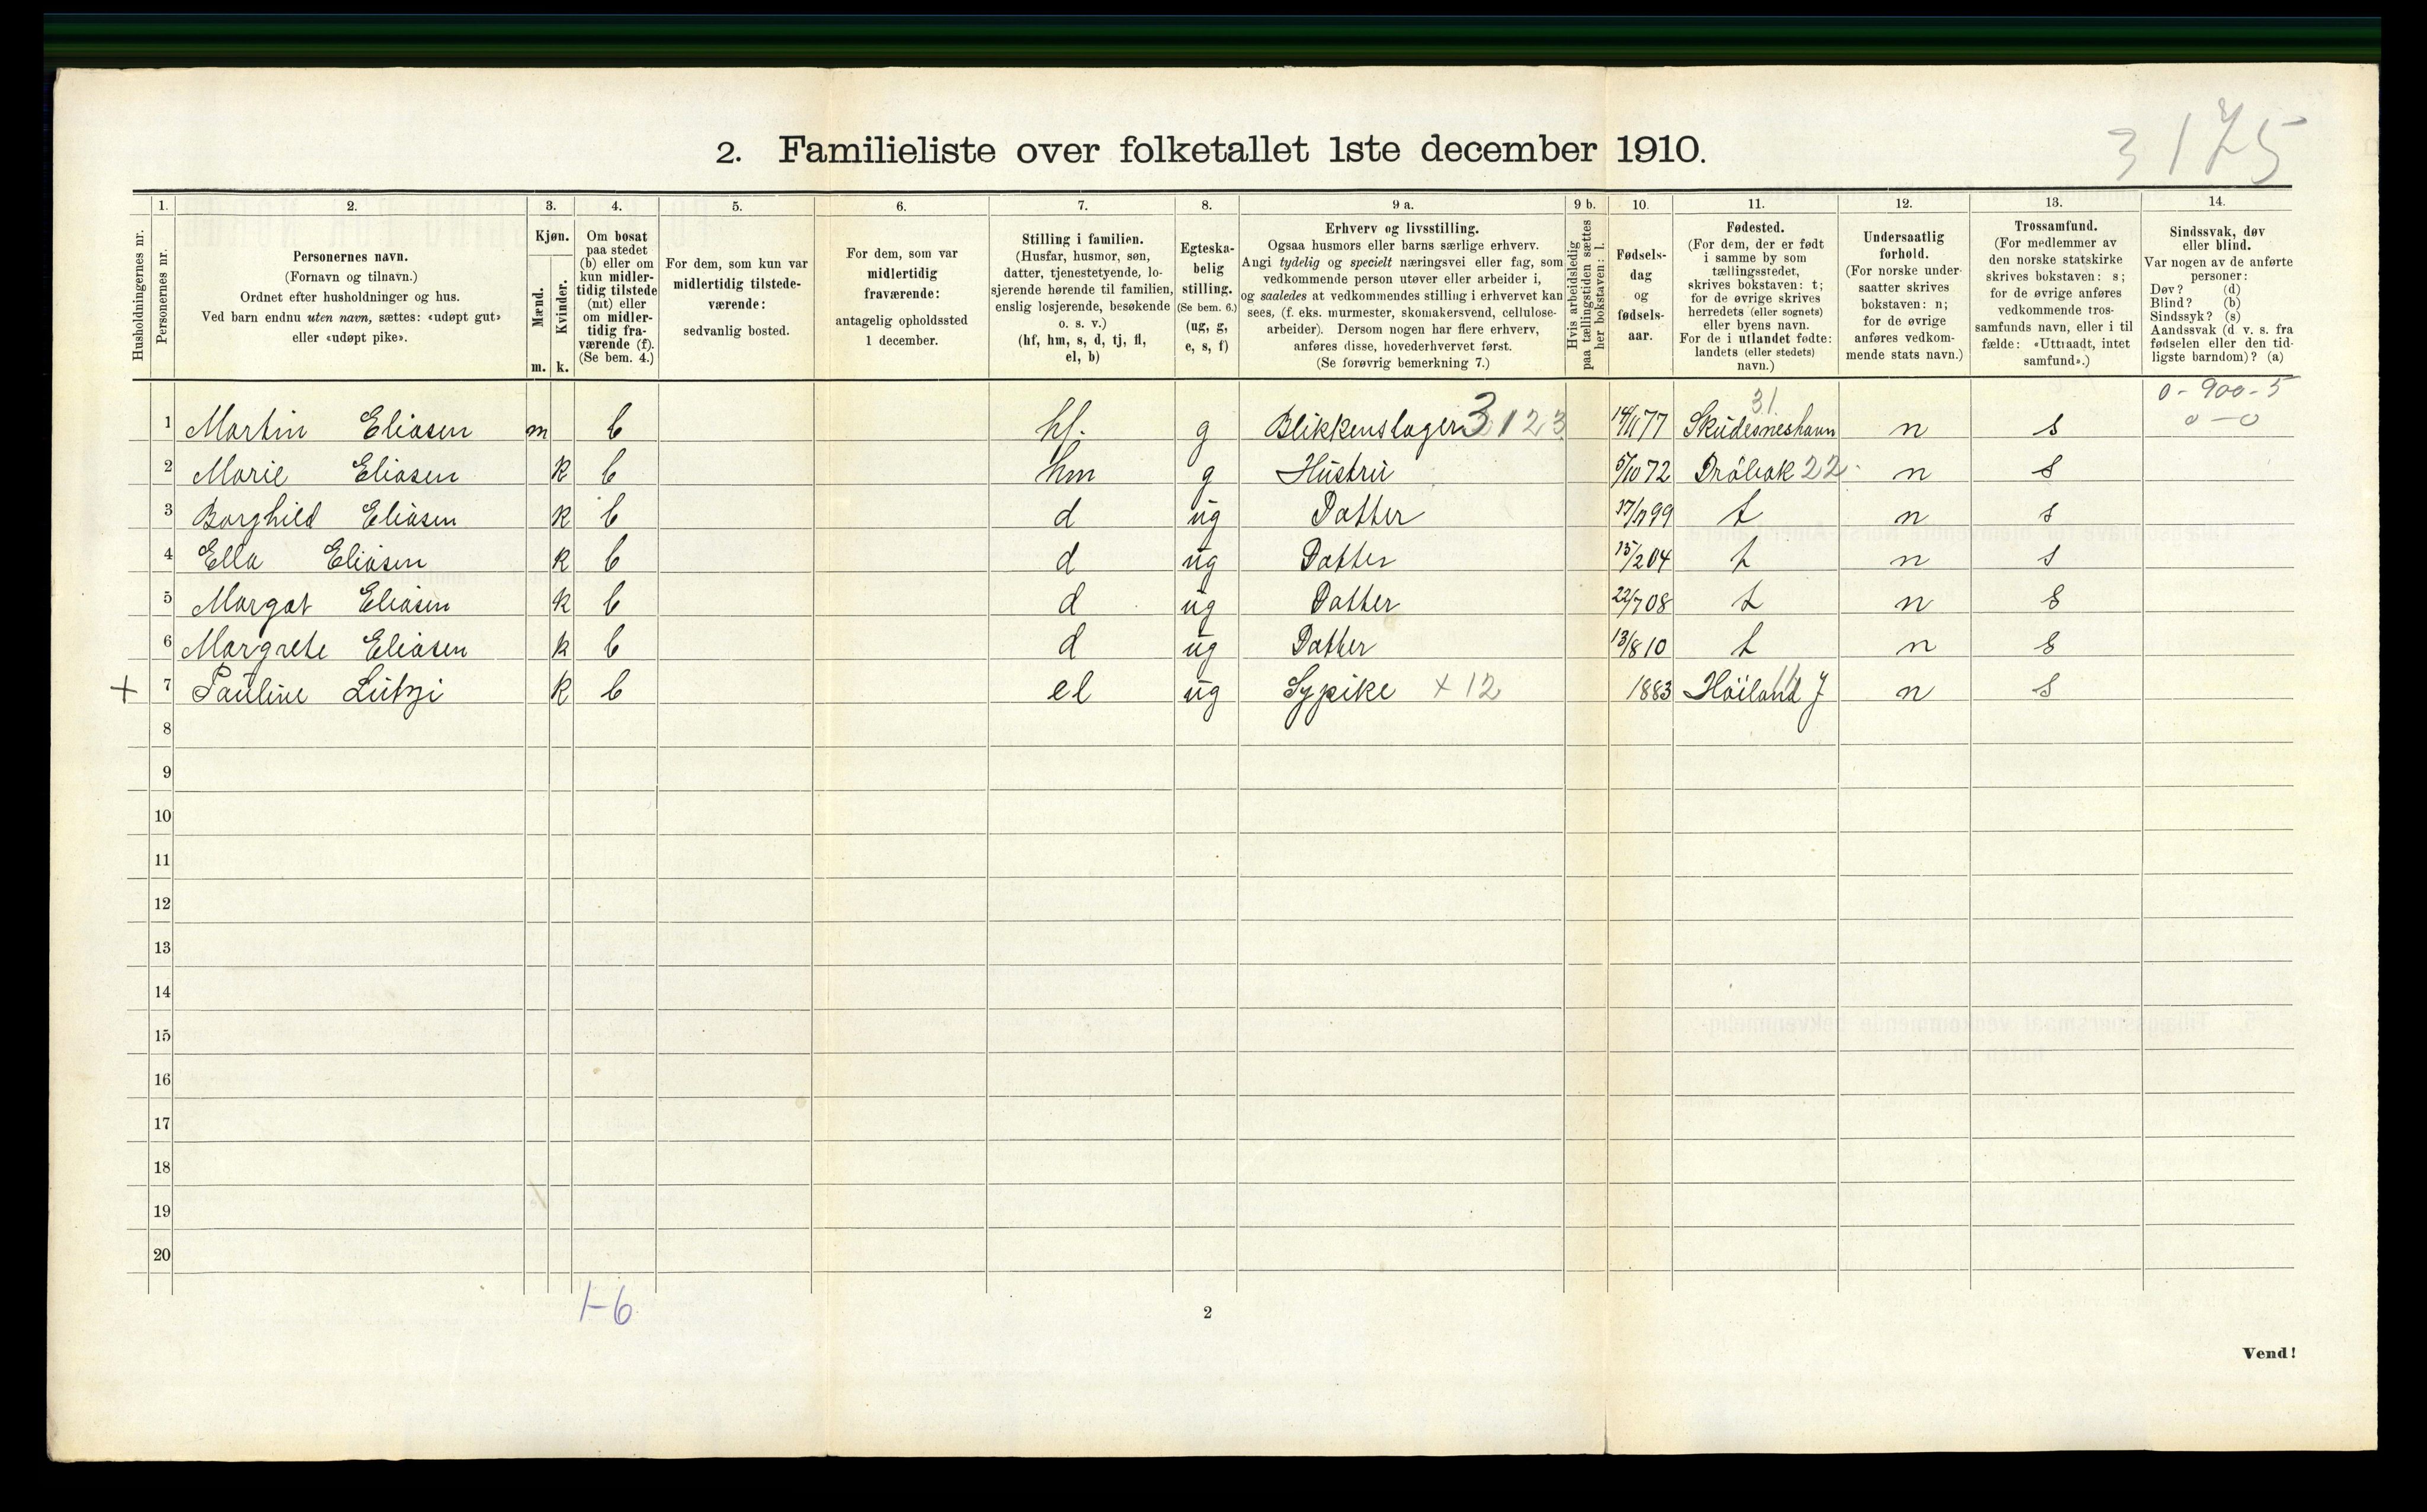 3175
2. Familieliste over folketallet 1ste december 1910.
1. 2. 3. 4. 5. 6. 7. 8. 9 a. 9 b. 10. 11. 12. 13. 14.
Husholdningernes nr.
Personernes nr.
Personernes navn.
(Fornavn og tilnavn.)
Ordnet efter husholdninger og hus.
Ved barn endnu uten navn, sættes: «udøpt gut»
eller «udøpt pike».
Kjøn.
Mænd.
Kvinder.
m. k.
Om bosat
paa stedet
(b) eller om
kun midler-
tidig tilstede
(mt) eller
om midler-
tidig fra-
værende (f).
(Se bem. 4.)
For dem, som kun var
midlertidig tilstede-
værende:
sedvanlig bosted.
For dem, som var
midlertidig
fraværende:
antagelig opholdssted
1 december.
Stilling i familien.
(Husfar, husmor, søn,
datter, tjenestetyende, lo-
sjerende hørende til familien,
enslig losjerende, besøkende
o. s. v.)
(hf, hm, s, d, tj, fl,
el, b)
Egteska-
belig
stilling.
(Se bem. 6.)
(ug, g,
e, s, f)
Erhverv og livsstilling.
Ogsaa husmors eller barns særlige erhverv.
Angi tydelig og specielt næringsvei eller fag, som
vedkommende person utøver eller arbeider i,
og saaledes at vedkommendes stilling i erhvervet kan
sees, (f. eks. murmester, skomakersvend, cellulose-
arbeider). Dersom nogen har flere erhverv,
anføres disse, hovederhvervet først.
(Se forøvrig bemerkning 7.)
Hvis arbeidsledig
paa tællingstiden sættes
her bokstaven: l.
Fødsels-
dag
og
fødsels-
aar.
Fødested.
(For dem, der er født
i samme by som
tællingsstedet,
skrives bokstaven: t;
for de øvrige skrives
herredets (eller sognets)
eller byens navn.
For de i utlandet fødte:
landets (eller stedets)
navn.)
Undersaatlig
forhold.
(For norske under-
saatter skrives
bokstaven: n;
for de øvrige
anføres vedkom-
mende stats navn.)
Trossamfund.
(For medlemmer av
den norske statskirke
skrives bokstaven: s;
for de øvrige anføres
vedkommende tros-
samfunds navn, eller i til
fælde: «Uttraadt, intet
samfund».)
Sindssvak, døv
eller blind.
Var nogen av de anførte
personer:
Døv? (d)
Blind? (b)
Sindssyk? (s)
Aandssvak (d v. s. fra
fødselen eller den tid-
ligste barndom)? (a)
31. 0-900-5
1 Martin Eliasen m b hf. g Blikkenslager 3123 14/11 77 Skudesneshavn n s 0-0
2 Marie Eliasen k b hm g Hustru 5/10 72 Drøbak 22 n s
3 Borghild Eliasen k b d ug Datter 99 t n s
4 Ella Eliasen k b d ug Datter 15/2 04 t n s
5 Margot Eliasen k b d ug Datter 22/7 08 t n s
6 Margrete Eliasen k b d ug Datter 13/8 10 t n s
+ 7 Pauline Lutsi k b el ug Sypike x 12 1883 Høiland J n s
8
9
10
11
12
13
14
15
16
17
18
19
20
1-6
2
Vend!